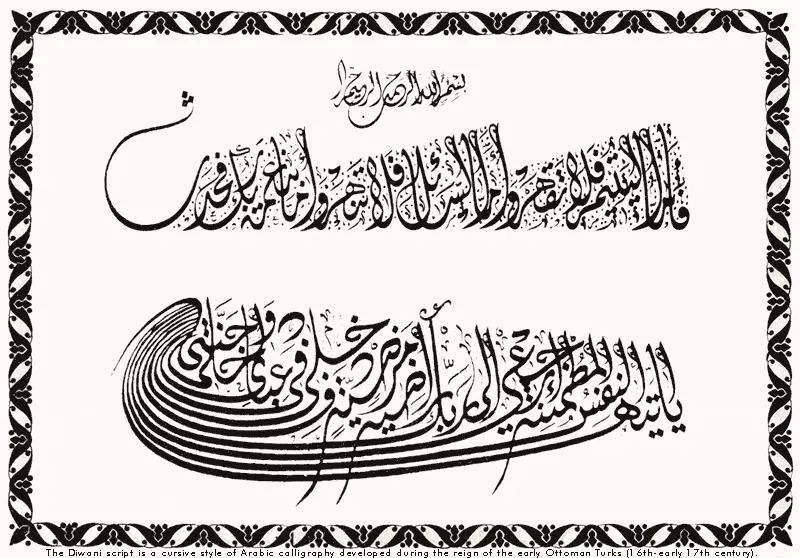 بسم الله الرحمن الرحيم
فأما اليتيم فلا تقهر وأما السائل فلا تنهر وأما بنعمة ربك فحدث
يا أيتها النفس المطمئنة ارجعي إلى ربك راضية مرضية فادخلي في عبادي وادخلي جنتي
The Diwani script is a cursive style of Arabic calligraphy developed during the reign of the early Ottoman Turks (16th-early 17th century).